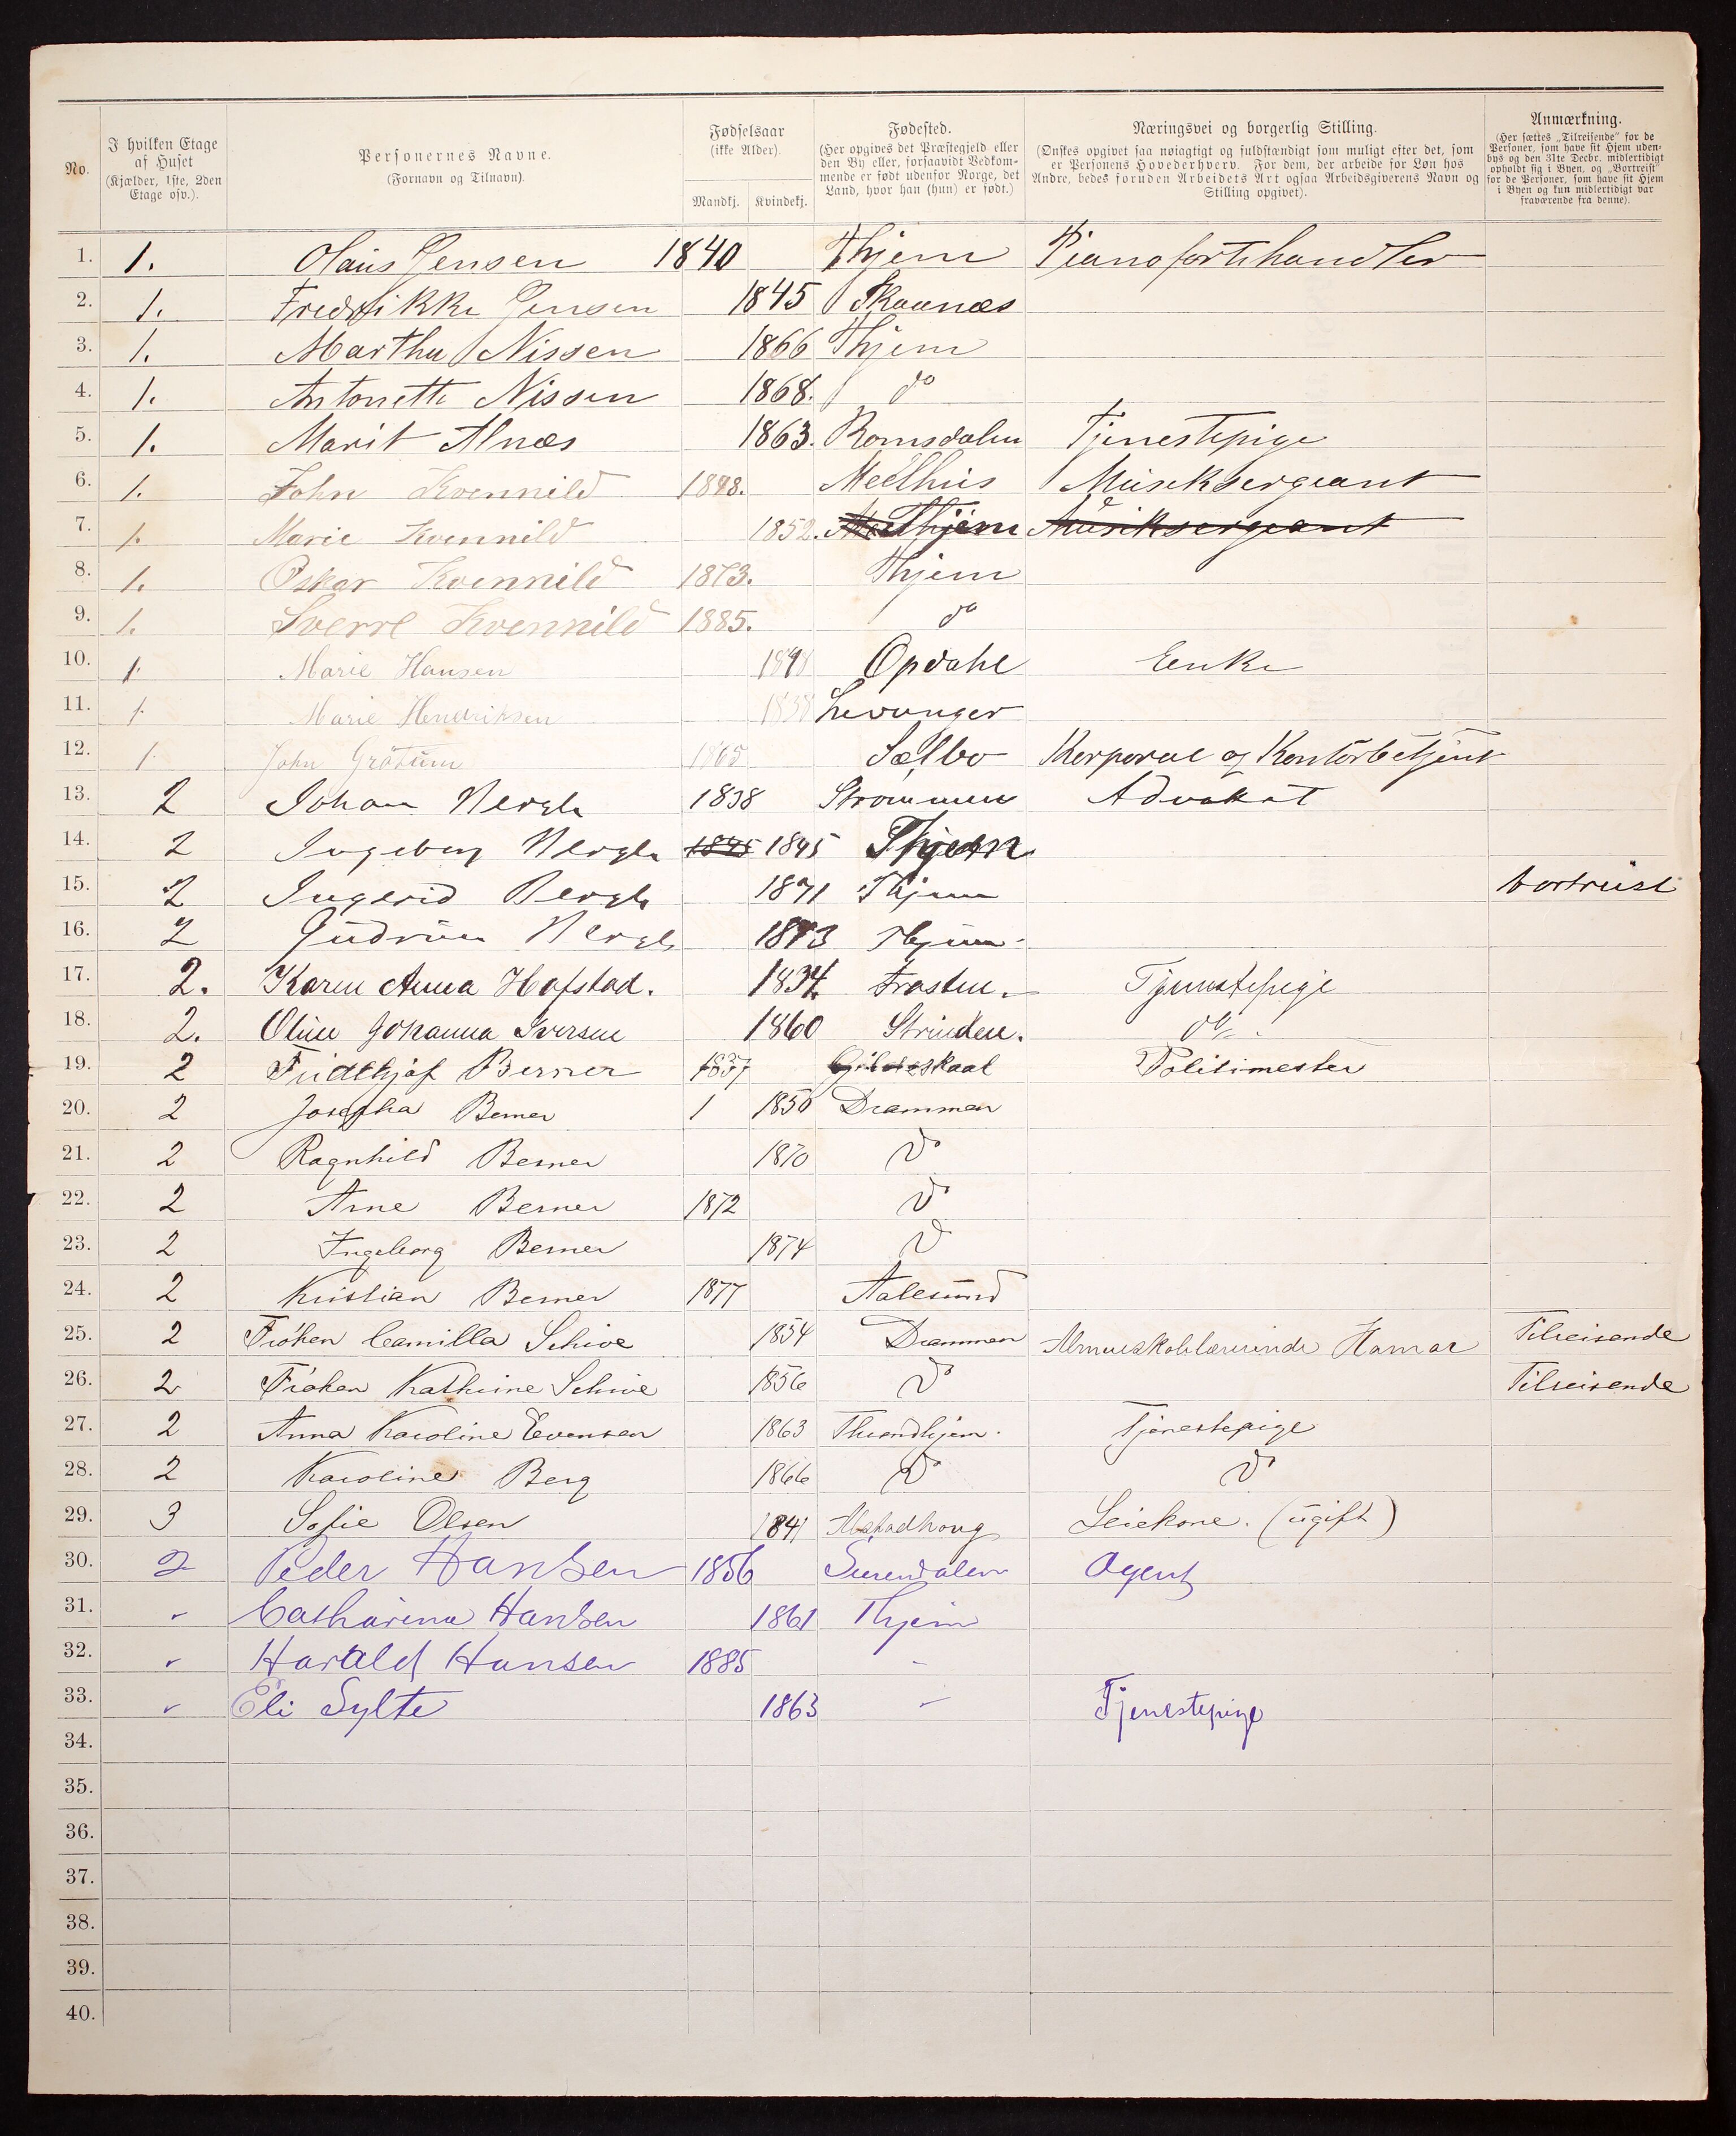 No.
I hvilken Etage af Huset (Kjælder, 1ste, 2den Etage osv.).
Personernes Navne. (Fornavn og Tilnavn).
Fødselsaar (ikke Alder).
Mandkj. Kvindekj.
Fødested. (Her opgives det Præstegjeld eller den By eller, forsaavidt Vedkommende er født udenfor Norge, det Land, hvor han (hun) er født.)
Næringsvei og borgerlig Stilling. (Ønskes opgivet saa nøiagtigt og fuldstændigt som muligt efter det, som er Personens Hovederhverv. For dem, der arbeide for Løn hos Andre, bedes foruden Arbeidets Art ogsaa Arbeidsgiverens Navn og Stilling opgivet).
Anmærkning. (Her sættes „Tilreisende" for de Personer, som have sit Hjem udenbys og den 31te Decbr. midlertidigt opholdt sig i Byen, og „Bortreist" for de Personer, som have sit Hjem i Byen og kun midlertidigt var fraværende fra denne).
1. 1. Olaus Jensen 1840 Thjem Pianofortehandler
2. 1. Fredrikke Jensen 1845 Skaanæs
3. 1. Martha Nissen 1866 Thjem
4. 1. Antonette Nissen 1868. do
5. 1. Marit Alnæs 1863. Romsdalen Tjenestepige
6. 1. John Kvennild 1848. Meelhus Musiksergeant
7. 1. Marie Kvennild 1852. Thjem Musiksergeant
8. 1. Oskar Kvennild 1873. Thjem
9. 1. Sverre Kvennild 1885. do
10. 1. Marie Hansen 1848 Opdahl Enke
11. 1. Marie Hendriksen 1838 Levanger
12. 1. John Gråtum 1865 Sælbo Korporal og Kontorbetjent
13. 2 Johan Bergh 1838 Strømmen Advokat
14. 2 Ingeborg Bergh 1845 1845 Thjem
15. 2 Ingerid Bergh 1871 Thjem bortreist
16. 2 Gudrun Bergh 1873 Thjem
17. 2. Karen Anna Hofstad. 1834. Frosten. Tjenestepige
18. 2. Oline Johanna Iversen 1860 Strinden. do
19. 2 Fridthjof Berner 1837 Gildeskaal Politimester
20. 2 Josepha Berner 1 1850 Drammen
21. 2 Ragnhild Berner 1870 do
22. 2 Arne Berner 1872 do
23. 2 Ingeborg Berner 1874 do
24. 2 Kristian Berner 1877 Aalesund
25. 2 Frøken Camilla Schive 1854 Drammen Almueskolelærerinde Hamar Tilreisende
26. 2 Frøken Kathrine Schive 1856 do Tilreisende
27. 2 Anna Karoline Evensen 1863 Throndhjem. Tjenestepige
28. 2 Karoline Berg 1866 do do
29. 3 Sofie Olsen 1841 Alstadhoug Leiekone. (ugift)
30. 2 Peder Hansen 1856 Surendalen Agent
31. " Catharina Hansen 1861 Thjem
32. " Harald Hansen 1885 -
33. " Eli Sylte 1863 - Tjenestepige
34.
35.
36.
37.
38.
39.
40.